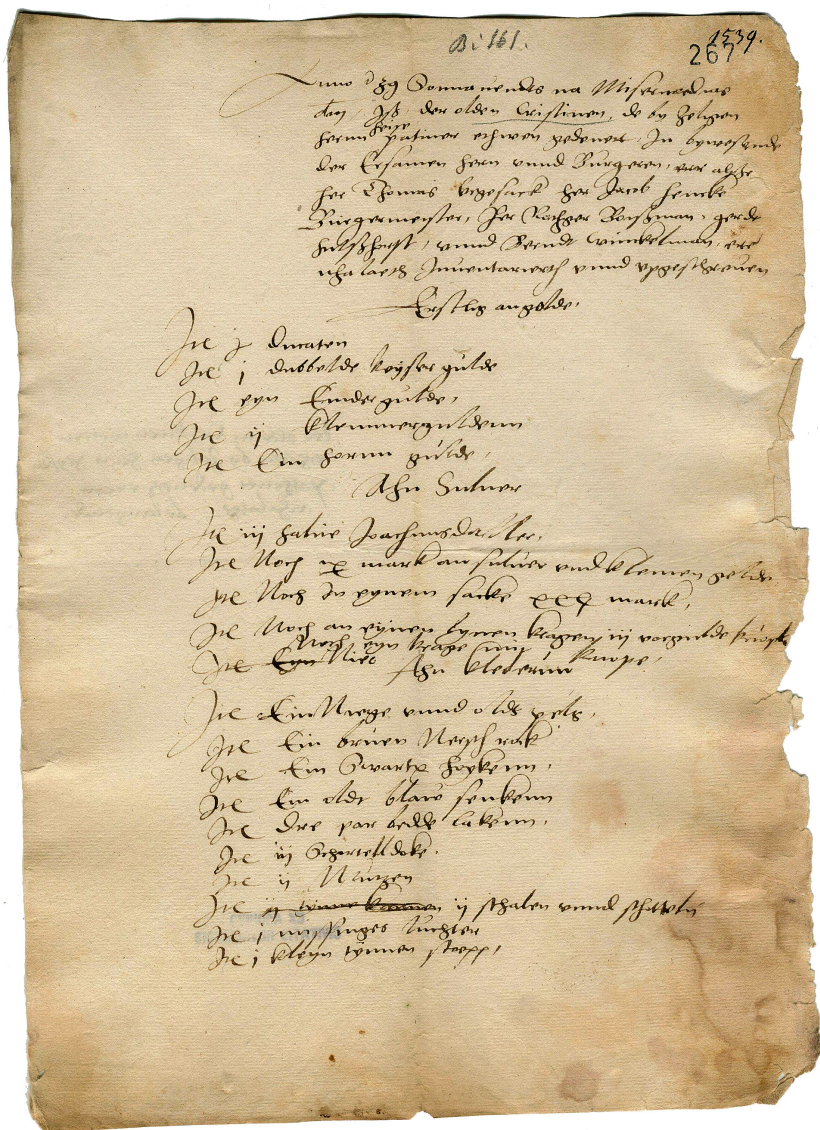 Bi 161.
1539.
267
Anno 39 Sonnauendes na Misericordias
dni, Jß der olden Cristinen, de by zeligen
hernn patiner gedenet, Jn bywesende
der Ersamen hern vnnd Burgeren, alße
her Thomas vegesack her Jacob hencke
Burgermeister, Her Rotger Boißman, gerdt
hulßhorst, vnnd Berndt winckelman, ere
nhalaeth Jnuentarierth vnnd vpgeschreuen
Erstlig an golde,
Jtē j ducaten
Jtē j dubbelde keyser gulde
Jtē eyn Emder gulde,
Jtē ij klemmerguldenn
Jtē Ein hornn gulde,
Ahn Suluer
Jtē iij halue Joachimsdaller,
Jtē Noch ix mark an suluer vnd kleinen gelde
Jtē Noch Jn eynem sacke xxx marck,
Jtē Noch an eynen kragen iij vorgulde knope
Noch eyn krage
Jtē Eyn Nie knope,
Ahn kledernn
Jtē Ein Niege vnnd olde pels,
Jtē Ein bruen Nersch rock
Jtē Ein Swarte hoykenn,
Jtē Ein oldt blaw
Jtē dre par bedde lakenn,
Jtē iij Schorteldoke,
Jtē ij Mutzen
Jtē ij tynne kannen ij schalen vnnd schottel
Jtē j missinges luchter
Jtē j kleyn tynnen stoepp,